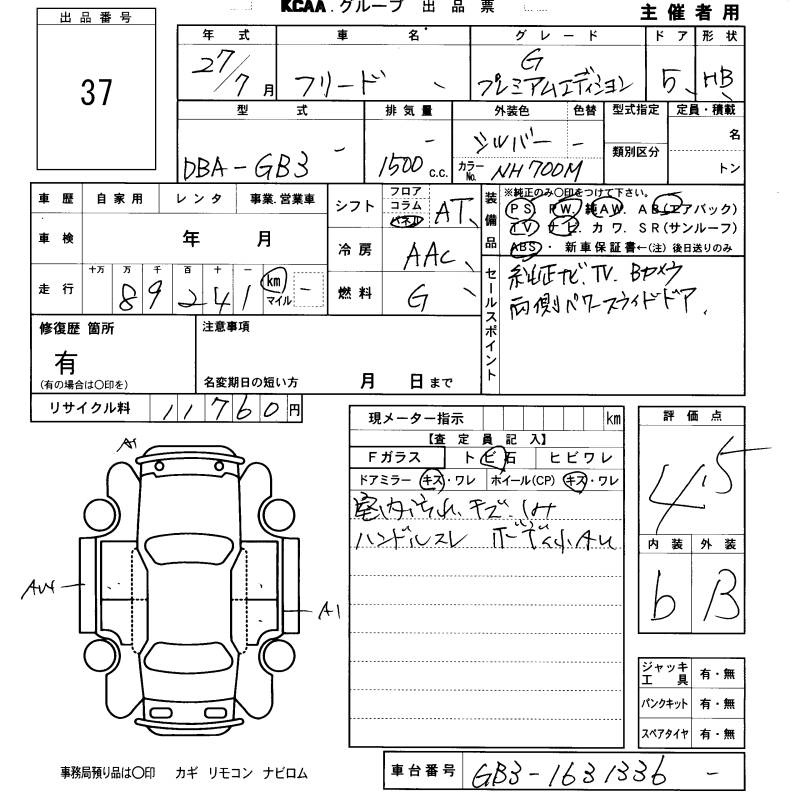 KCAA.グループ 出品票
主催者用
出品番号
37
年式 車名 グレード ドア 形状
27/7月 フリード G プレミアムエディション 5 HB
型式 排気量 外装色 色替 型式指定 定員・積載
DBA-GB3 - 1500c.c. - シルバー - カラーNo. NH700M 類別区分 名 トン
車歴 自家用 レンタ 事業.営業車
車検 年 月
走行 十万 万 千 百 十 一
89241 km マイル -
シフト フロア コラム パネル AT
冷房 AAC
燃料 G
装備品
※純正のみ〇印をつけて下さい。
PS. PW. 純AW. AB(エアバック)
TV ナビ カワ. SR(サンルーフ)
ABS・ 新車保証書←(注)後日送りのみ
セールスポイント
純正ナビ.TV. Bカメラ
両側パワースライドドア.
修復歴 箇所
有
(有の場合は〇印を)
注意事項
名変期日の短い方 月 日まで
リサイクル料 11760円
現メーター指示 km
【査定員記入】
Fガラス トビ石 ヒビワレ
ドアミラー キズ・ワレ ホイール(CP) キズ・ワレ
室内汚れ.キズ.しみ
ハンドルスレ ボディ小AU
評価点
4.5
内装 外装
b B
A1
AU4
A1
ジャッキ工具 有・無
パンクキット 有・無
スペアタイヤ 有・無
事務局預り品は〇印 カギ リモコン ナビロム
車台番号 GB3-1631336 -